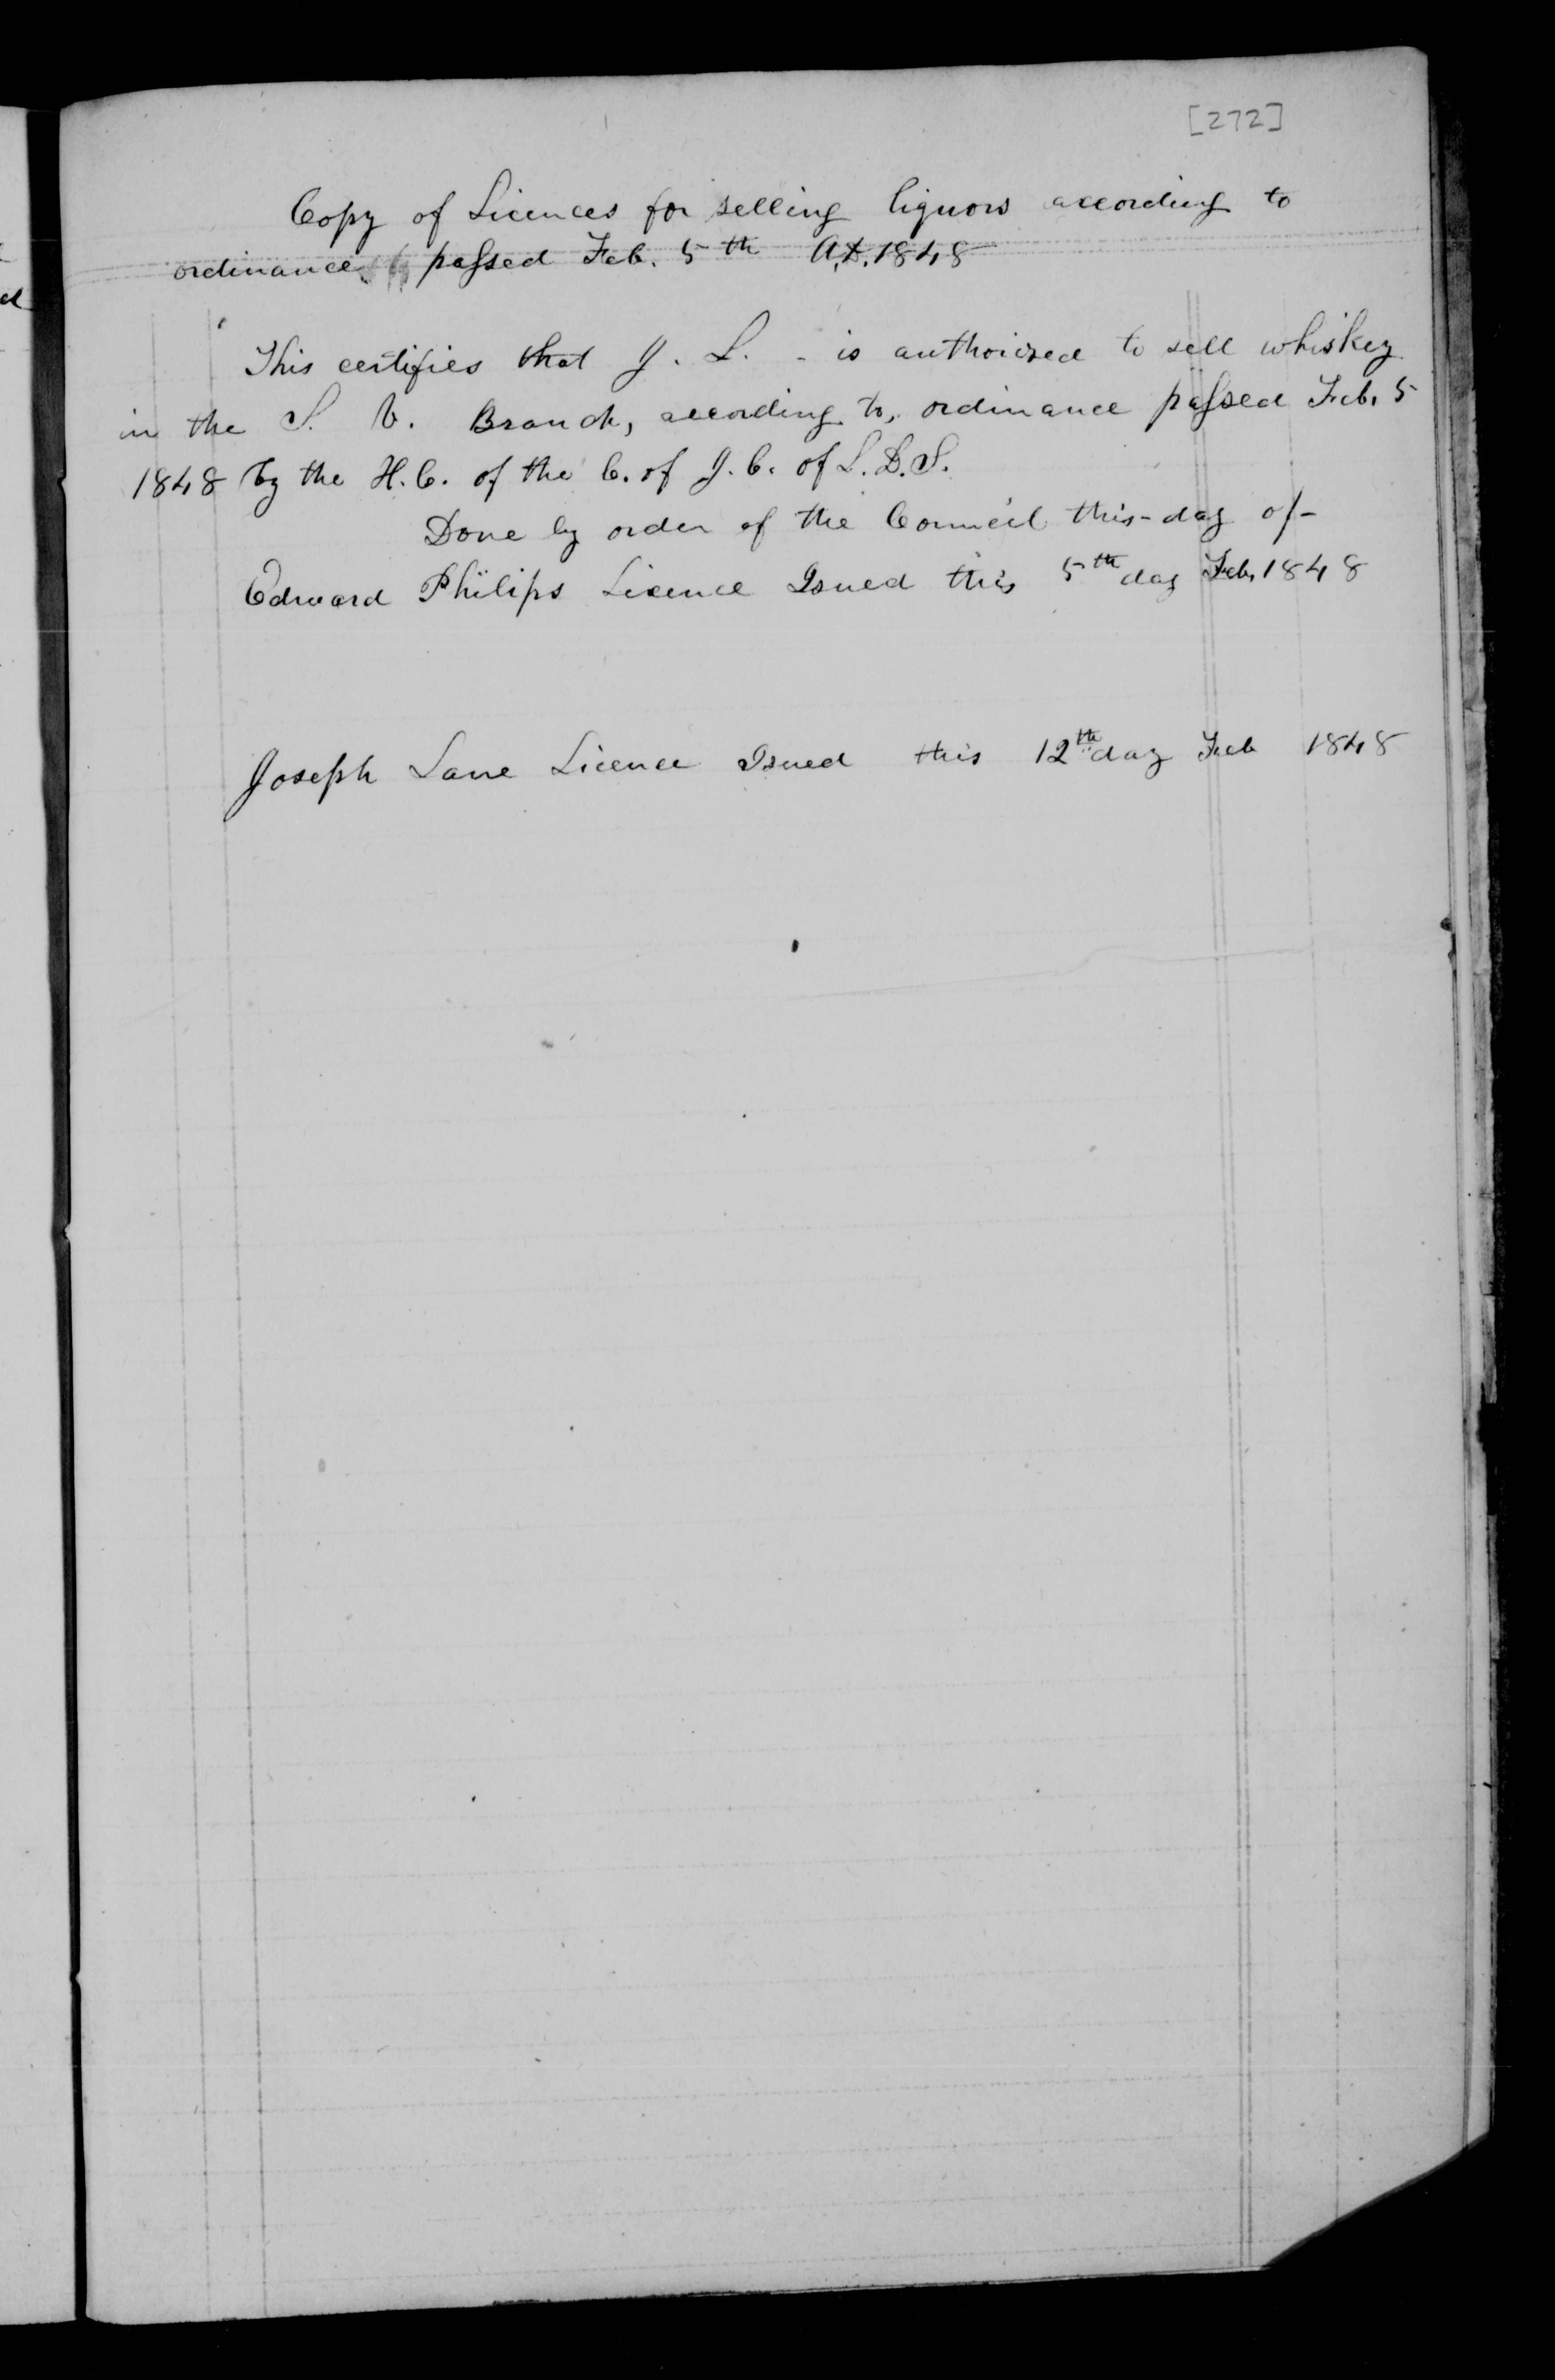 [272]
Copy of Licences for selling liquors according to
ordinance passed Feb. 5th A.D. 1848
This certifies that J. L. - is authorized to sell whiskey
in the S. V. Branch, according to, ordinance passed Feb. 5
1848 by the H.C. of the C. of J.C. of L.D.S.
Done by order of the Council this - day of -
Edward Philips Licence Isued this 5th day Feb. 1848
Joseph Lane Licence Isued this 12th day Feb 1848